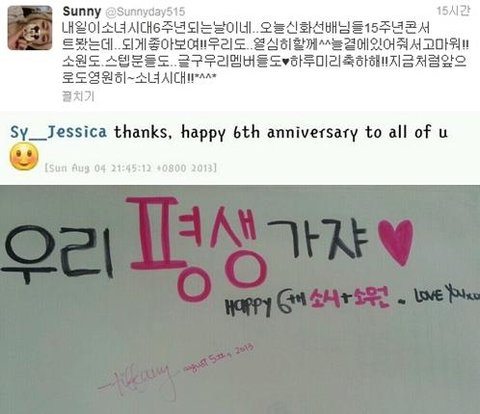 Sunny @Sunnyday515 15시간
내일이소녀시대6주년되는날이네..오늘신화선배님들15주년콘서
트봤는데..되게좋아보여!!우리도..열심히할께^^늘곁에있어줘서고마워!!
소원도..스텝분들도..글구우리멤버들도♥하루미리축하해!!지금처럼앞으
로도영원히~소녀시대!!*^^*
펼치기
Sy__Jessica thanks, happy 6th anniversary to all of u
[Sun Aug 04 21:45:12 +0800 2013]
우리 평생 가쟈 ♥
HAPPY 6th 소시+소원 ~ LOVE YOU xoxo
Tiffany august 5th, 2013